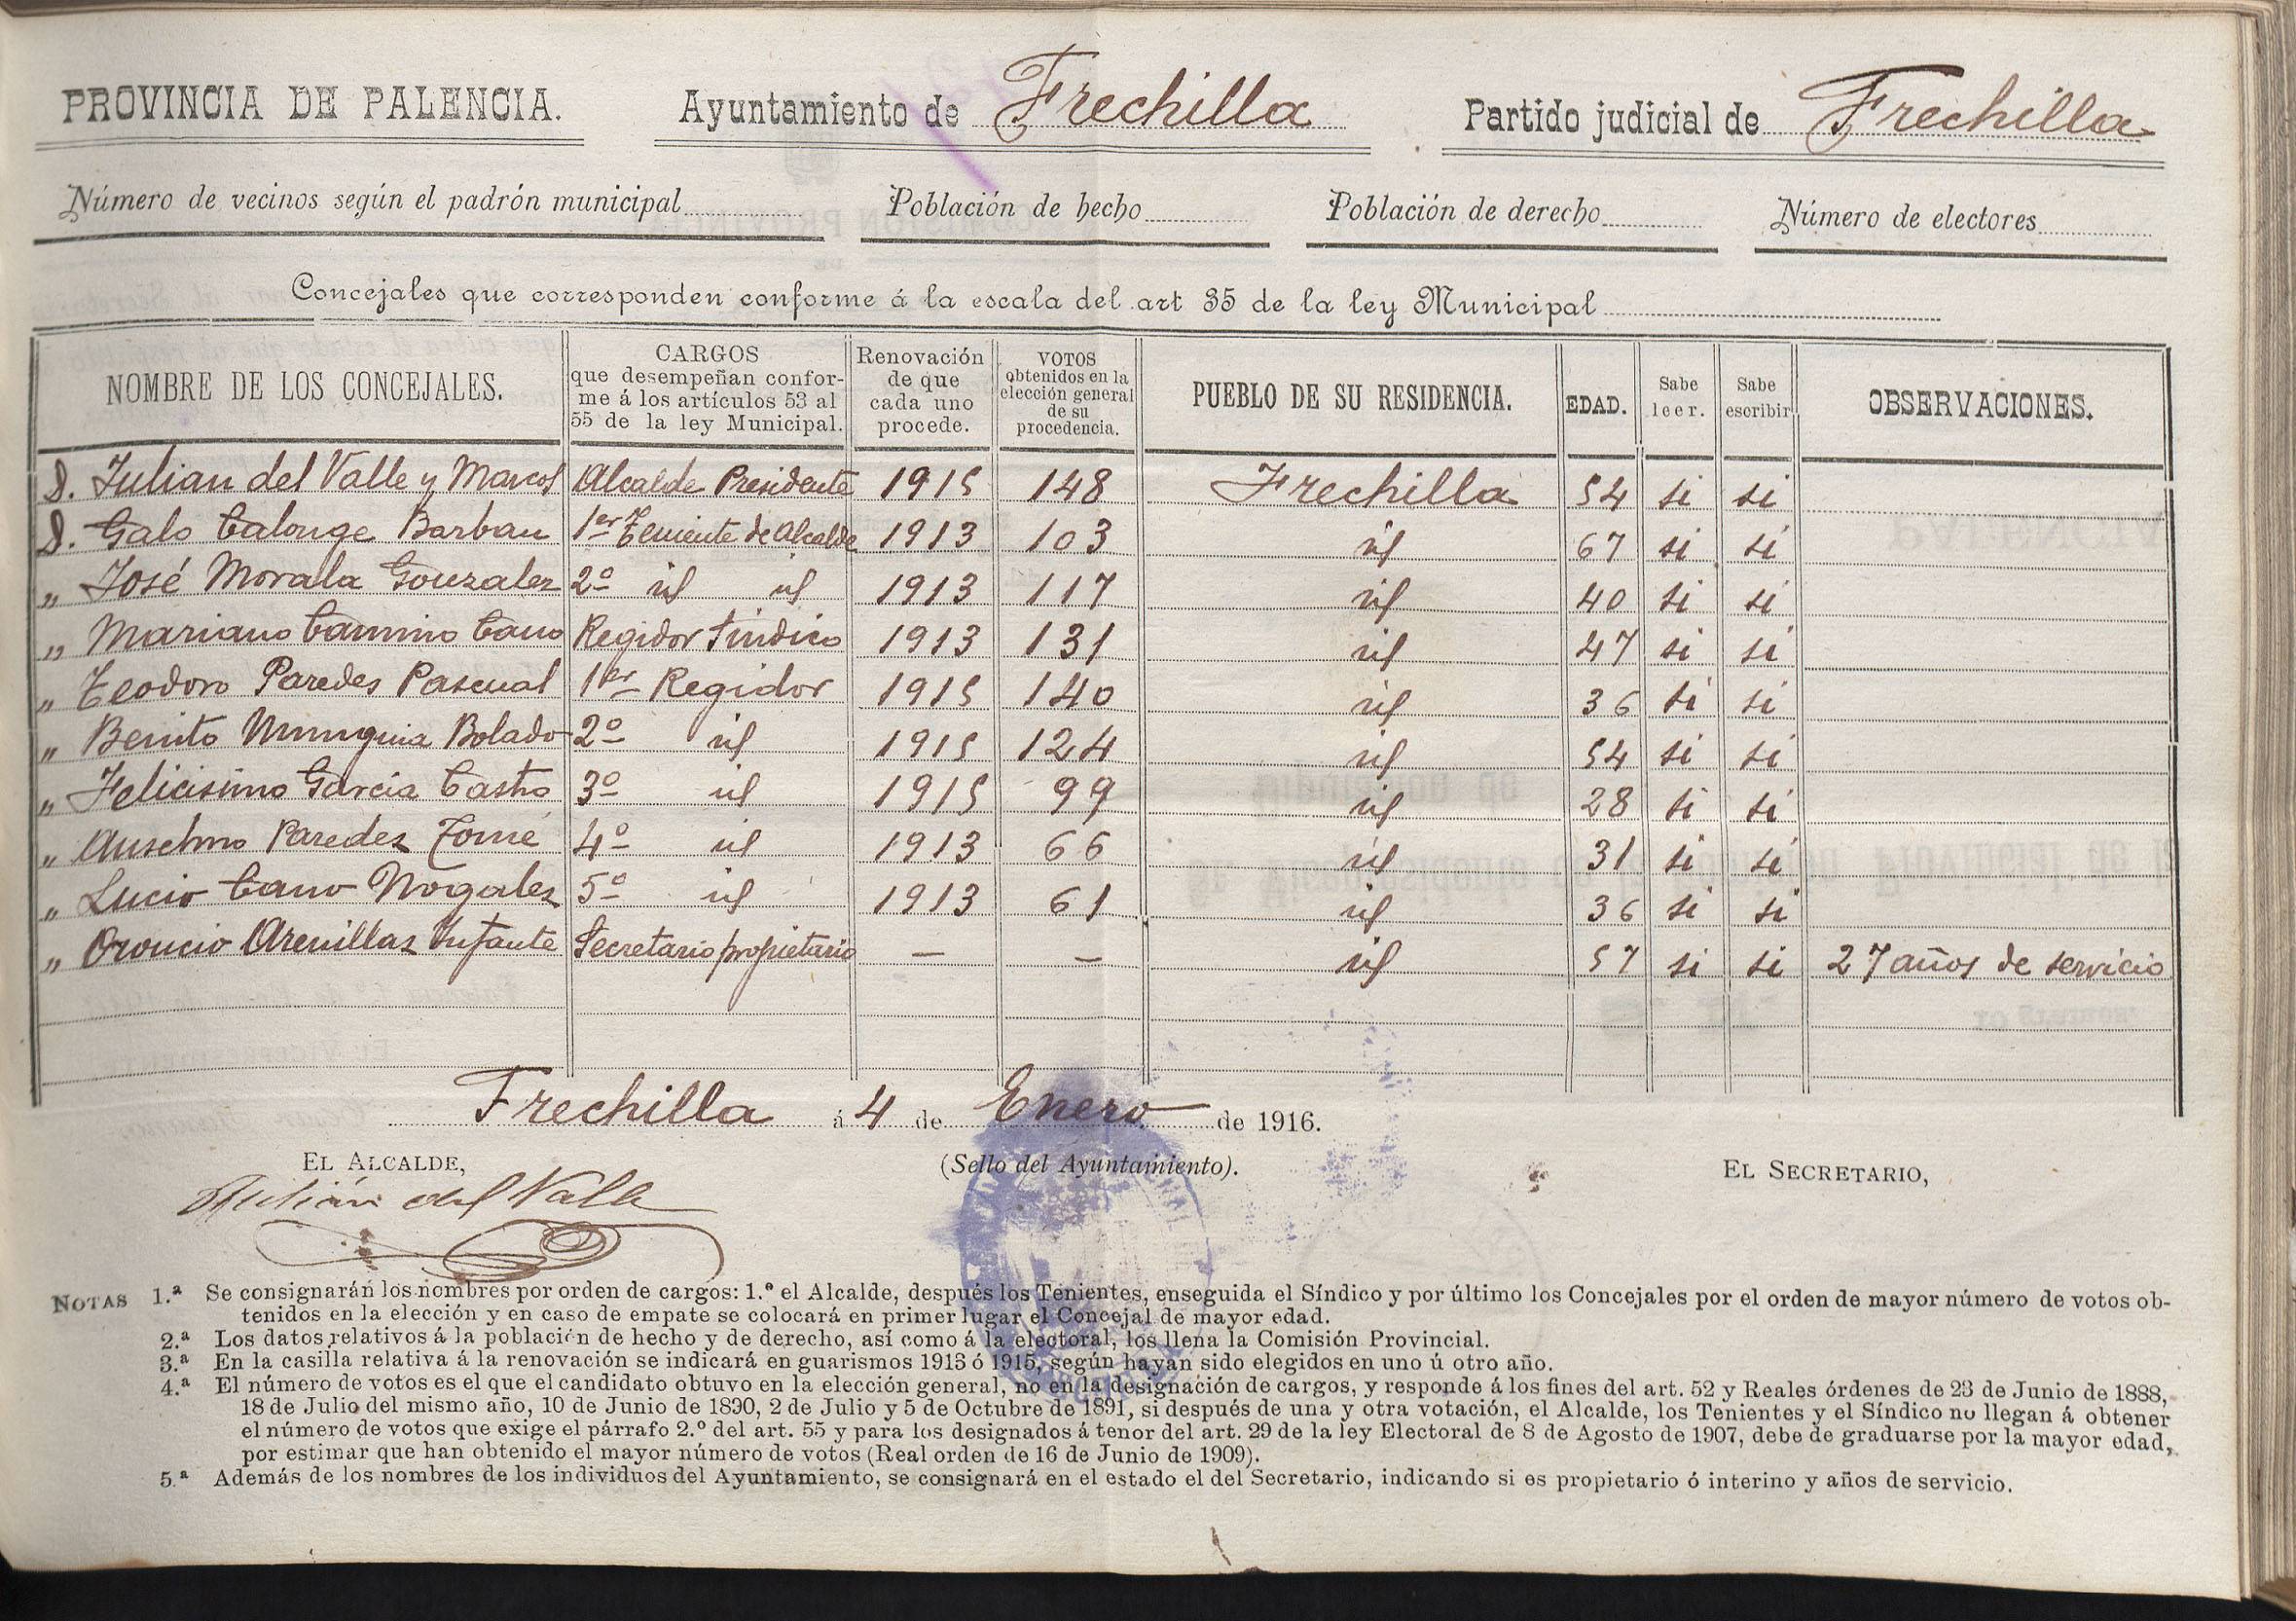 PROVINCIA DE PALENCIA. Ayuntamiento de Frechilla Partido judicial de Frechilla
Número de vecinos según el padrón municipal Población de hecho Población de derecho Número de electores
Concejales que corresponden conforme á la escala del art 35 de la ley Municipal
NOMBRE DE LOS CONCEJALES. CARGOS que desempeñan confor- me á los artículos 53 al 55 de la ley Municipal. Renovación de que cada uno procede. VOTOS obtenidos en la elección general de su procedencia. PUEBLO DE SU RESIDENCIA. EDAD. Sabe leer. Sabe escribir OBSERVACIONES.
D. Julian del Valle y Marcos Alcalde Presidente 1915 148 Frechilla 54 si si
D. Galo Calonge Barban 1er Teniente de Alcalde 1913 103 id 67 si si
„ José Morala Gonzalez 2º id id 1913 117 id 40 si si
„ Mariano Camino Cano Regidor Sindico 1913 131 id 47 si si
„ Teodoro Paredes Pascual 1er Regidor 1915 140 id 36 si si
„ Benito Munguia Bolado 2º id 1915 124 id 54 si si
„ Felicisimo Garcia Castro 3º id 1915 99 id 28 si si
„ Anselmo Paredes Tomé 4º id 1913 66 id 31 si si
„ Lucio Cano Nogales 5º id 1913 61 id 36 si si
„ Oroncio Arenillas Infante Secretario propietario — — id 57 si si 27 años de servicio
Frechilla á 4 de Enero de 1916.
EL ALCALDE, (Sello del Ayuntamiento). EL SECRETARIO,
Julián del Valle
NOTAS 1.ª Se consignarán los nombres por orden de cargos: 1.º el Alcalde, después los Tenientes, enseguida el Síndico y por último los Concejales por el orden de mayor número de votos ob-
tenidos en la elección y en caso de empate se colocará en primer lugar el Concejal de mayor edad.
2.ª Los datos relativos á la población de hecho y de derecho, así como á la electoral, los llena la Comisión Provincial.
3.ª En la casilla relativa á la renovación se indicará en guarismos 1913 ó 1915, según hayan sido elegidos en uno ú otro año.
4.ª El número de votos es el que el candidato obtuvo en la elección general, no en la designación de cargos, y responde á los fines del art. 52 y Reales órdenes de 23 de Junio de 1888,
18 de Julio del mismo año, 10 de Junio de 1890, 2 de Julio y 5 de Octubre de 1891, si después de una y otra votación, el Alcalde, los Tenientes y el Síndico no llegan á obtener
el número de votos que exige el párrafo 2.º del art. 55 y para los designados á tenor del art. 29 de la ley Electoral de 8 de Agosto de 1907, debe de graduarse por la mayor edad,
por estimar que han obtenido el mayor número de votos (Real orden de 16 de Junio de 1909).
5.ª Además de los nombres de los individuos del Ayuntamiento, se consignará en el estado el del Secretario, indicando si es propietario ó interino y años de servicio.